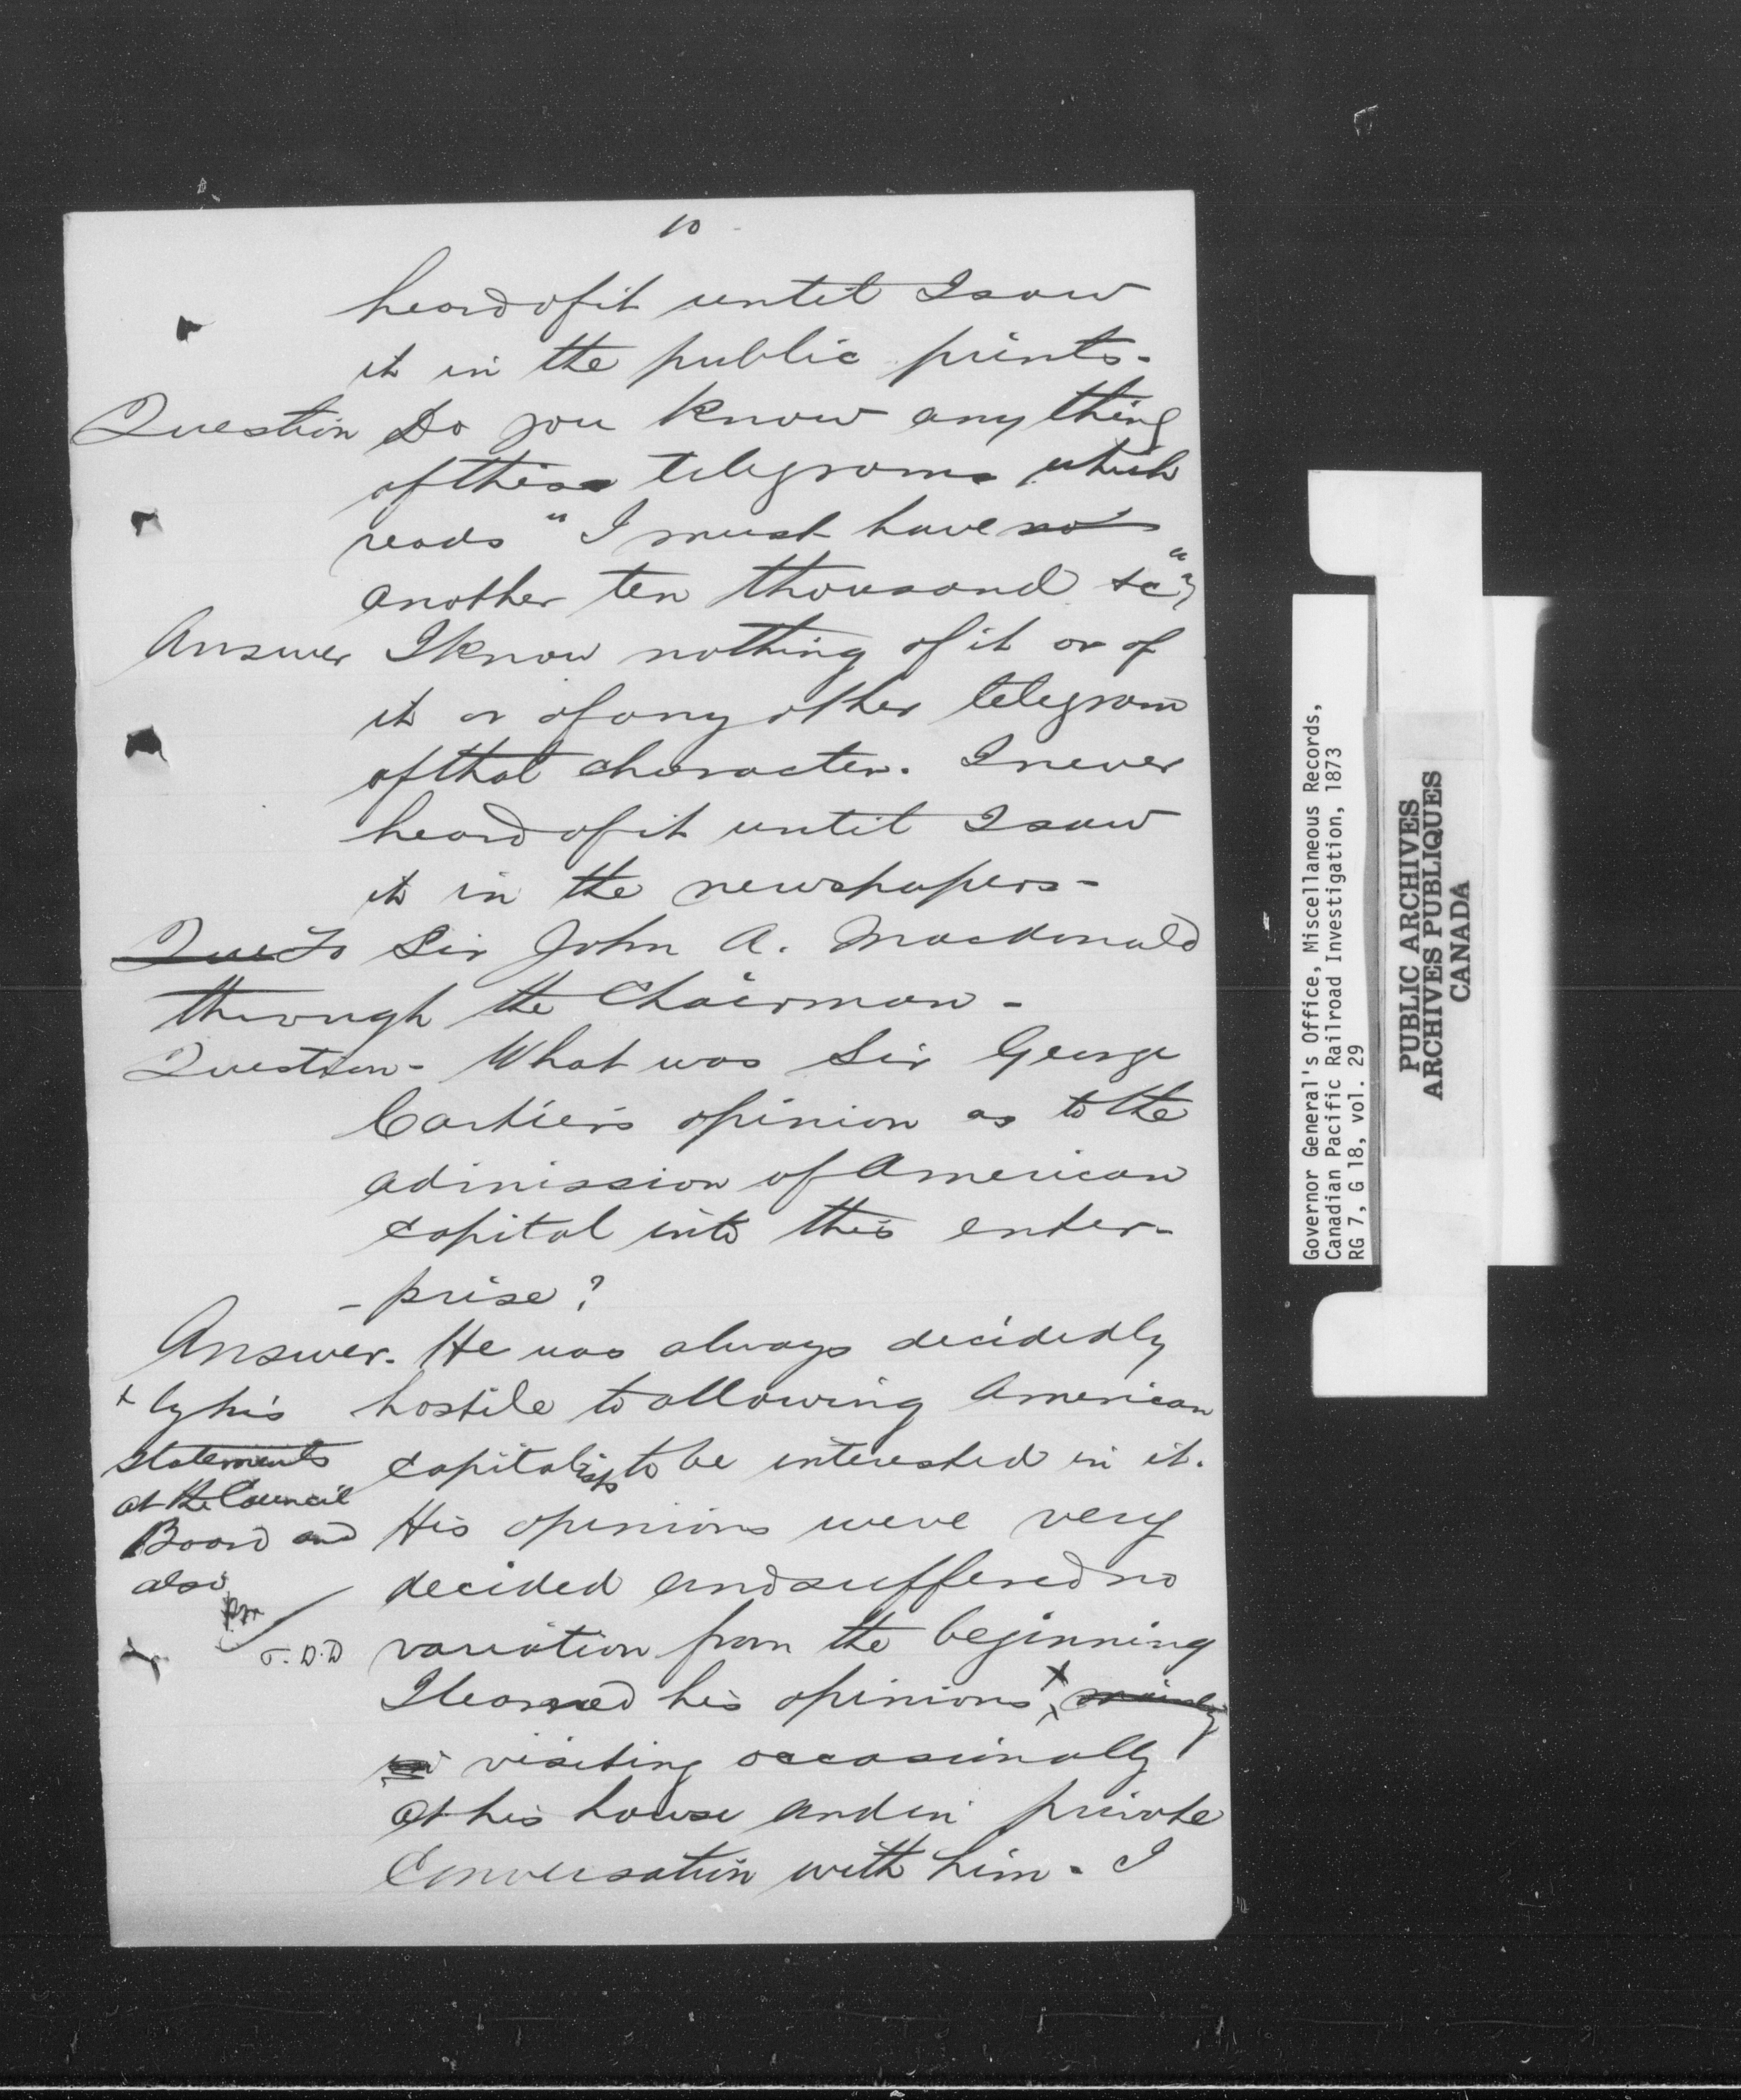 10
heard of it until I saw
it in the public prints.
Question Do you know any thing
of this telegram which
reads "I must have no
another ten thousand &c"?
Answer I know nothing of it or of
it or of any other telegram
of that character. I never
heard of it until I saw
it in the newspapers-
Ques To Sir John A. Macdonald
through the Chairman -
Question - What was Sir George
Cartier's opinion as to the
admission of American
capital into this enter-
- prise?
Answer. He was always decidedly
hostile to allowing American
capitalists to be interested in it.
His opinions were very
decided and suffered no
variation from the beginning
I learned his opinions x mainly
visiting occasionally
at his house and in private
Conversation with him. I
x by his
statements
at the Council
Board and
also
T. D. D
Governor General's Office, Miscellaneous Records,
Canadian Pacific Railroad Investigation, 1873
RG 7, G 18, vol. 29
PUBLIC ARCHIVES
ARCHIVES PUBLIQUES
CANADA